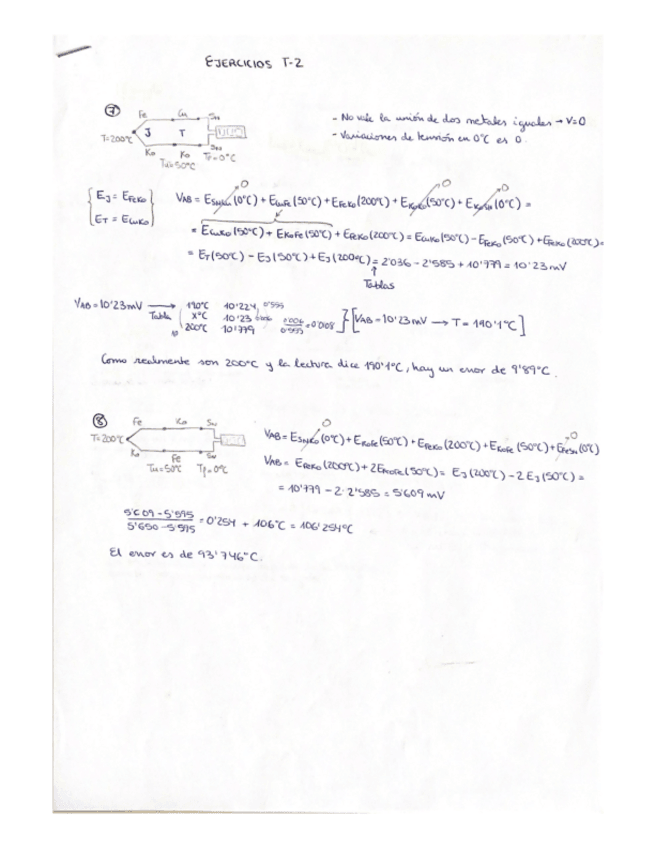 EJERCICIOS T-2
⑦ Fe Cu Sn
T=200ºC J T
Ko Ko Tp=0ºC Sn
Tu=50ºC
- No vale la unión de dos metales iguales → V=0
- Variaciones de tensión en 0ºC es 0.
EJ = EFeKo
ET = ECuKo
0 0 0
VAB = (0ºC) + ECuFe (50ºC) + EFeKo (200ºC) + EKoKo (50ºC) + (0ºC) =
= ECuKo (50ºC) + EKoFe (50ºC) + EFeKo (200ºC) = ECuKo (50ºC) - EFeKo (50ºC) + EFeKo (200ºC) =
= ET (50ºC) - EJ (50ºC) + EJ (200ºC) = 2'036 - 2'585 + 10'779 = 10'23 mV
↑
Tablas
VAB = 10'23 mV → Tabla
190ºC 10'224 0'555
XºC 10'23 0'006
200ºC 10'779
10
0'006/0'555 = 0'0108
[VAB = 10'23 mV → T = 190'1ºC]
Como realmente son 200ºC y la lectura dice 190'1ºC, hay un error de 9'89ºC.
⑧ Fe Ko Sn
T=200ºC
Ko Fe Sn
Tu=50ºC Tp=0ºC
0 0
VAB = ESnKo (0ºC) + EKoFe (50ºC) + EFeKo (200ºC) + EKoFe (50ºC) + EFeSn (0ºC)
VAB = EFeKo (200ºC) + 2EKoFe (50ºC) = EJ (200ºC) - 2EJ (50ºC) =
= 10'779 - 2·2'585 = 5'609 mV
5'609 - 5'595 / 5'650 - 5'595 = 0'254 + 106ºC = 106'254ºC
El error es de 93'746ºC.